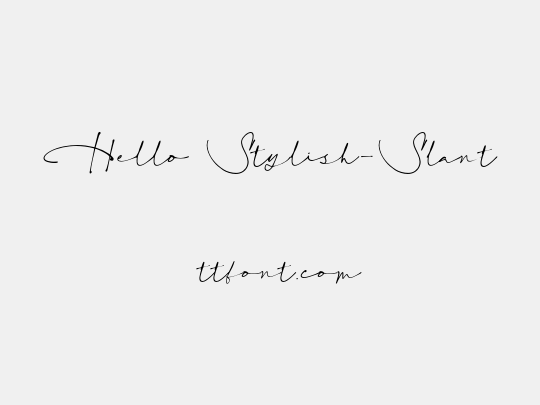 Hello Stylish-Slant
ttfont.com